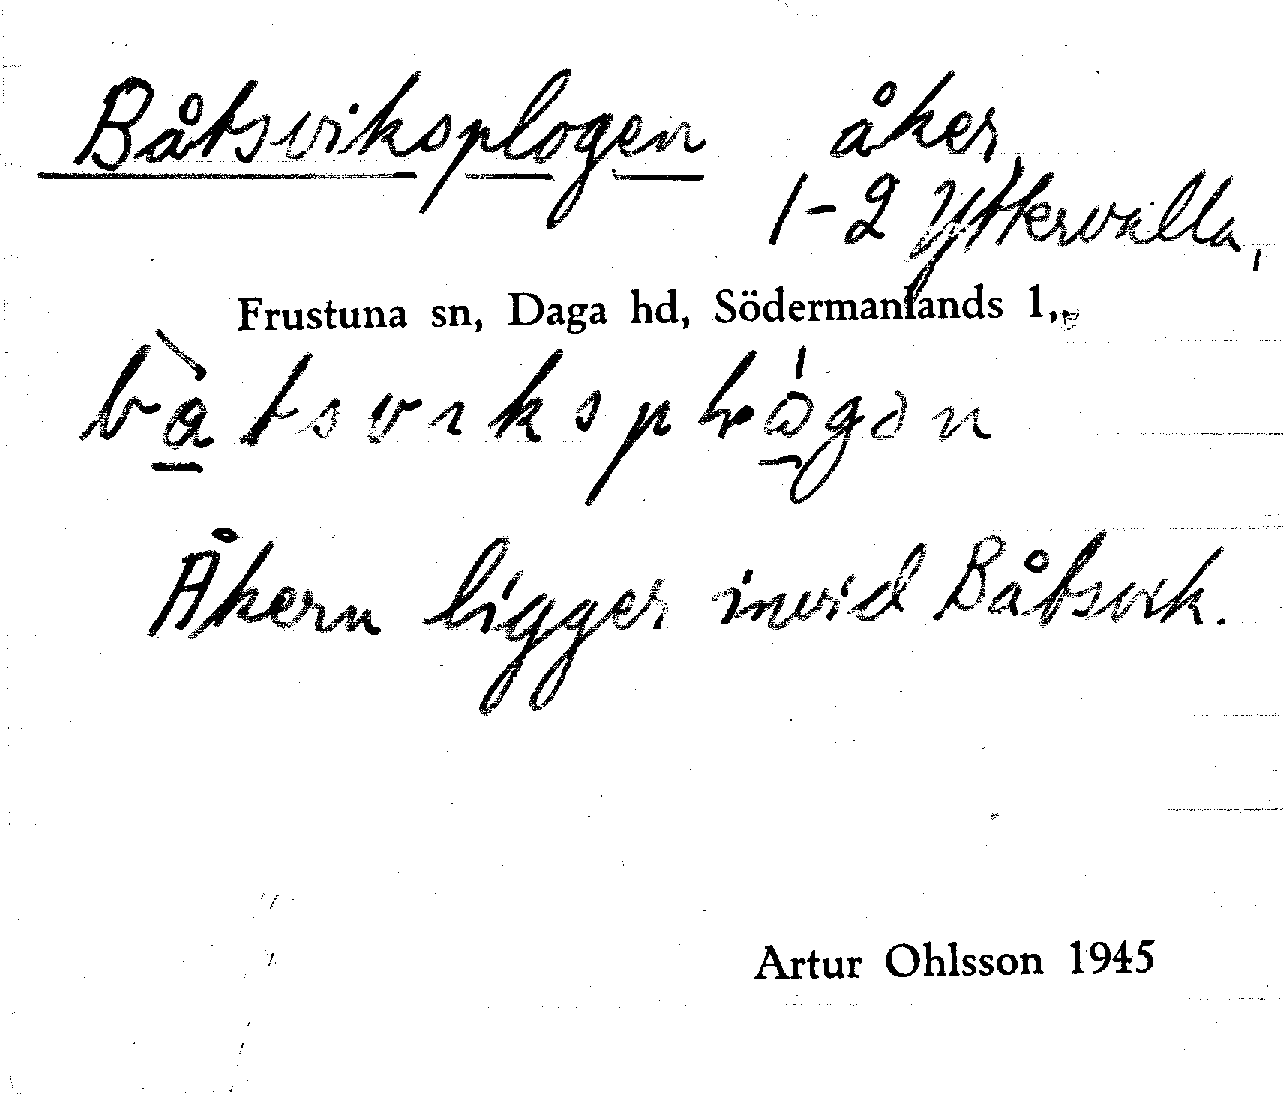 Båtsviksplogen åker,
1-2 Ytkervalla,
Frustuna sn, Daga hd, Södermanlands l.,
Åkern ligger invid Båtsvik.
Artur Ohlsson 1945